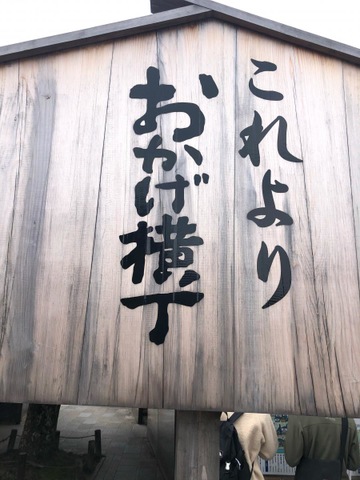 これより
おかげ横丁